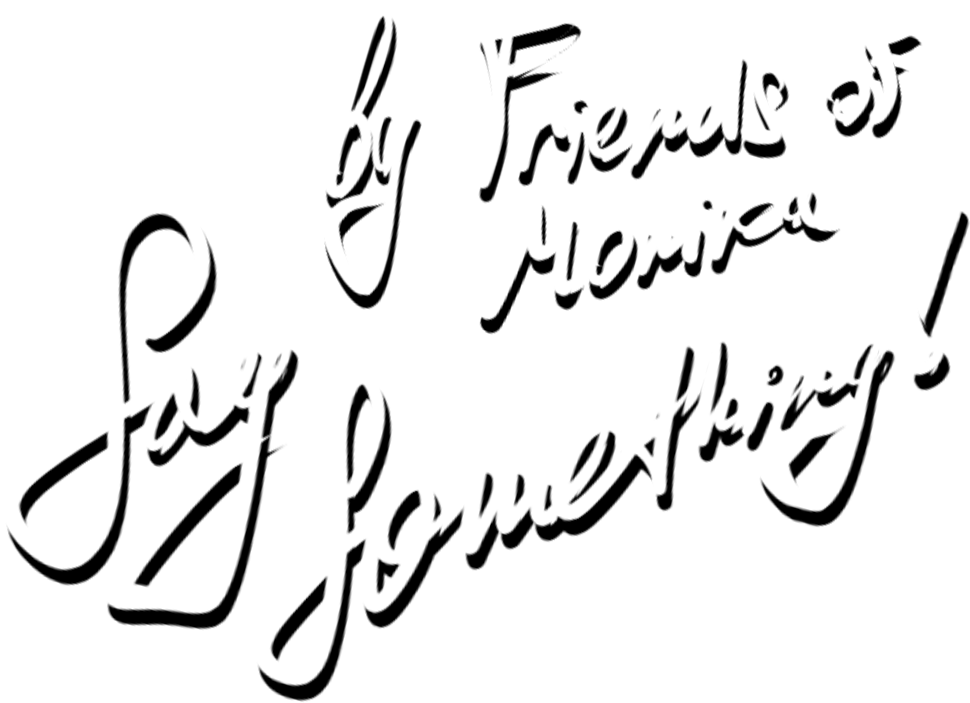 by Friends of
Monica
Say
Something!